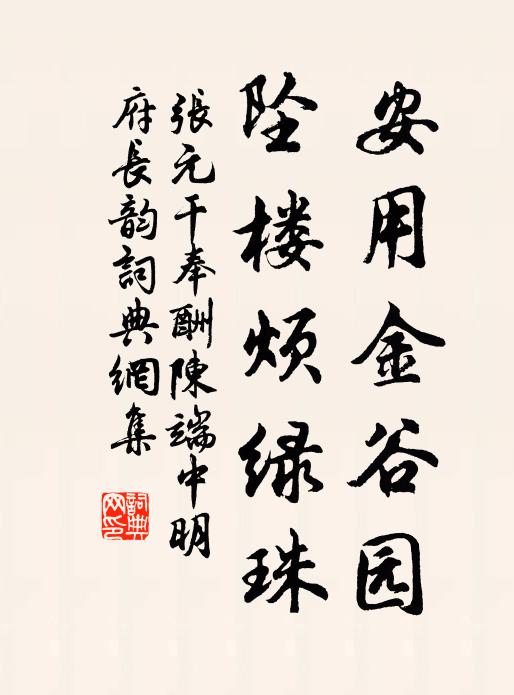 安用金谷园
坠楼烦绿珠
張元干奉酬陳端中明
府長韵詞典網集
詞典网印